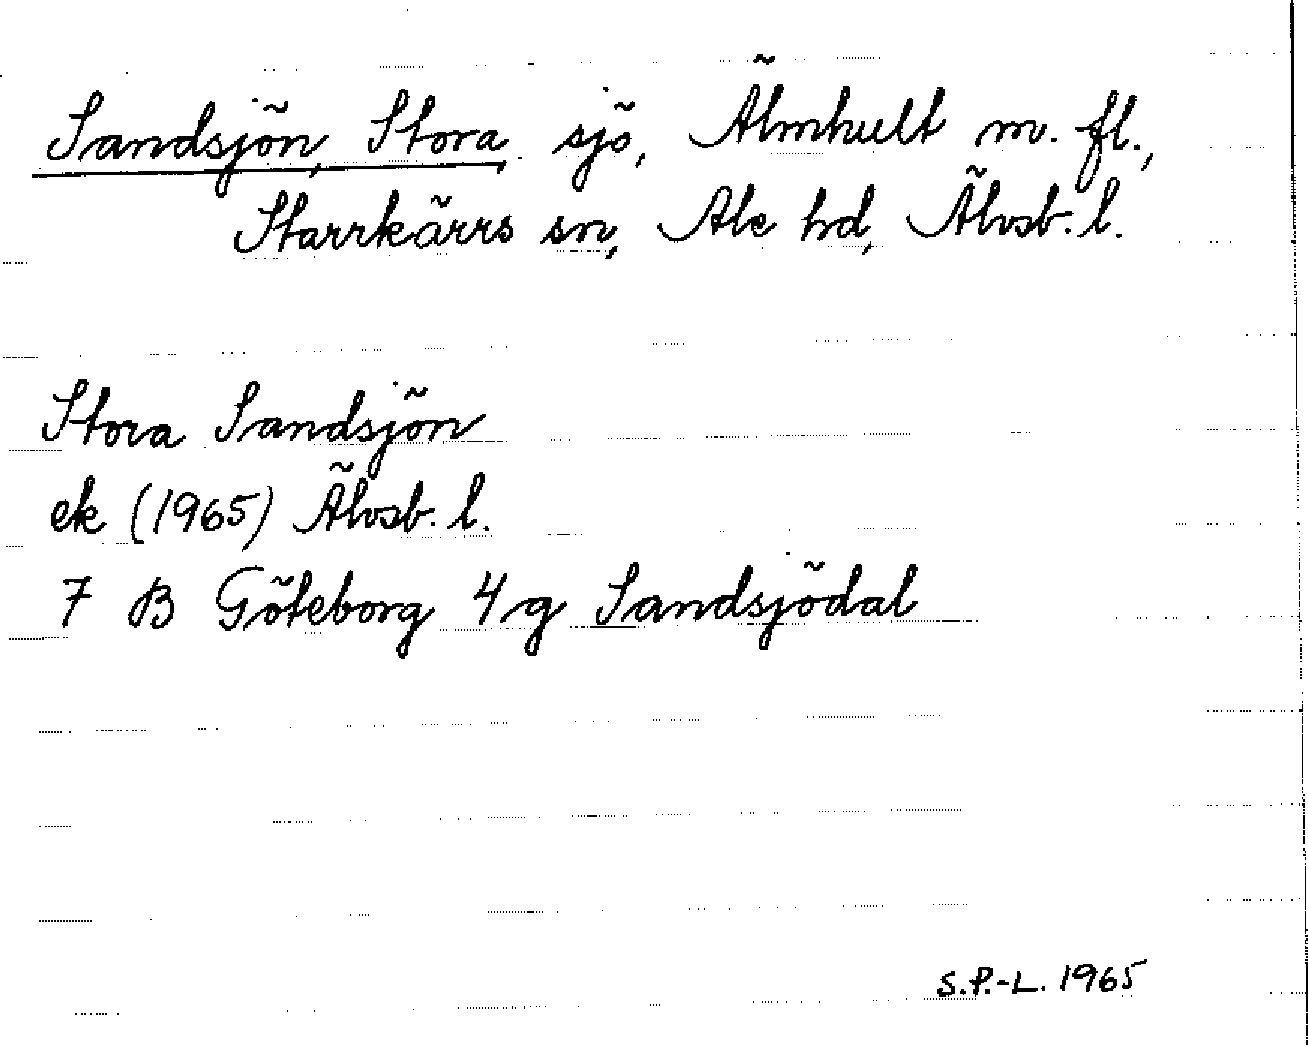 Sandsjön, Stora, sjö, Älmhult m. fl.,
Starrkärrs sn, Ale hd, Älvsb. l.
Stora Sandsjön
ek (1965) Älvsb. l.
7 B Göteborg 4g Sandsjödal
S.P.-L. 1965